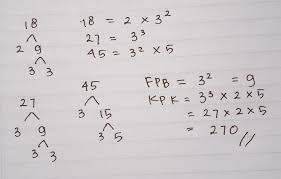 18
2 9
3 3
18 = 2 × 3²
27 = 3³
45 = 3² × 5
27
3 9
3 3
45
3 15
3 5
FPB = 3² = 9
KPK = 3³ × 2 × 5
= 27 × 2 × 5
= 270 //